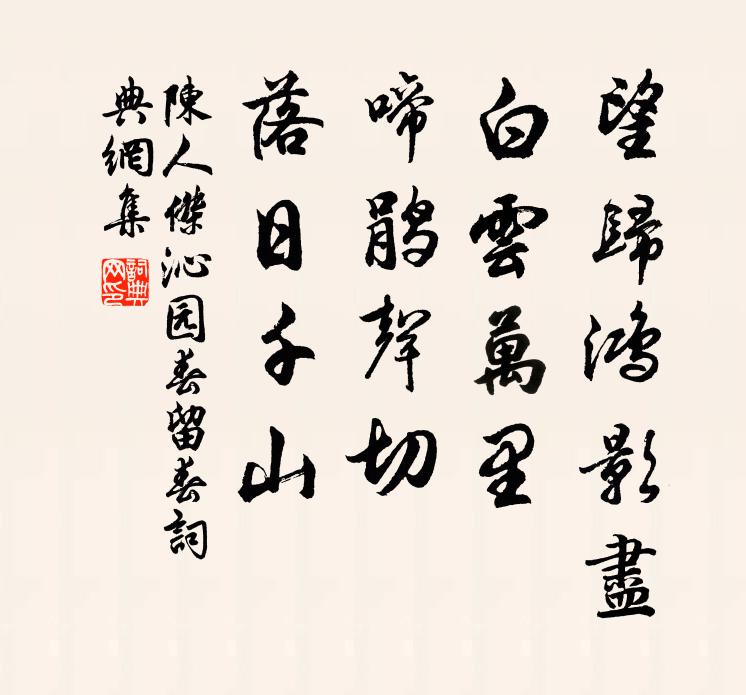 望歸鴻影盡
白雲萬里
啼鵑聲切
落日千山
陳人傑沁园春留春詞
典網集
詞典网印